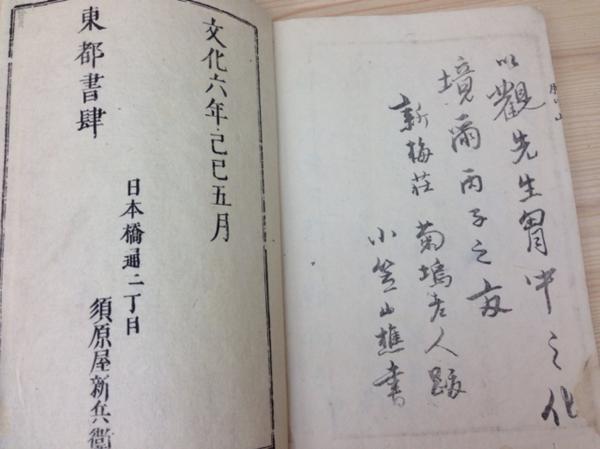 以觀先生胷中之化
境爾丙子之
新梅莊 菊塢老人跋
小笠山樵書
文化六年己巳五月
東都書肆
日本橋通二丁目
須原屋新兵衞